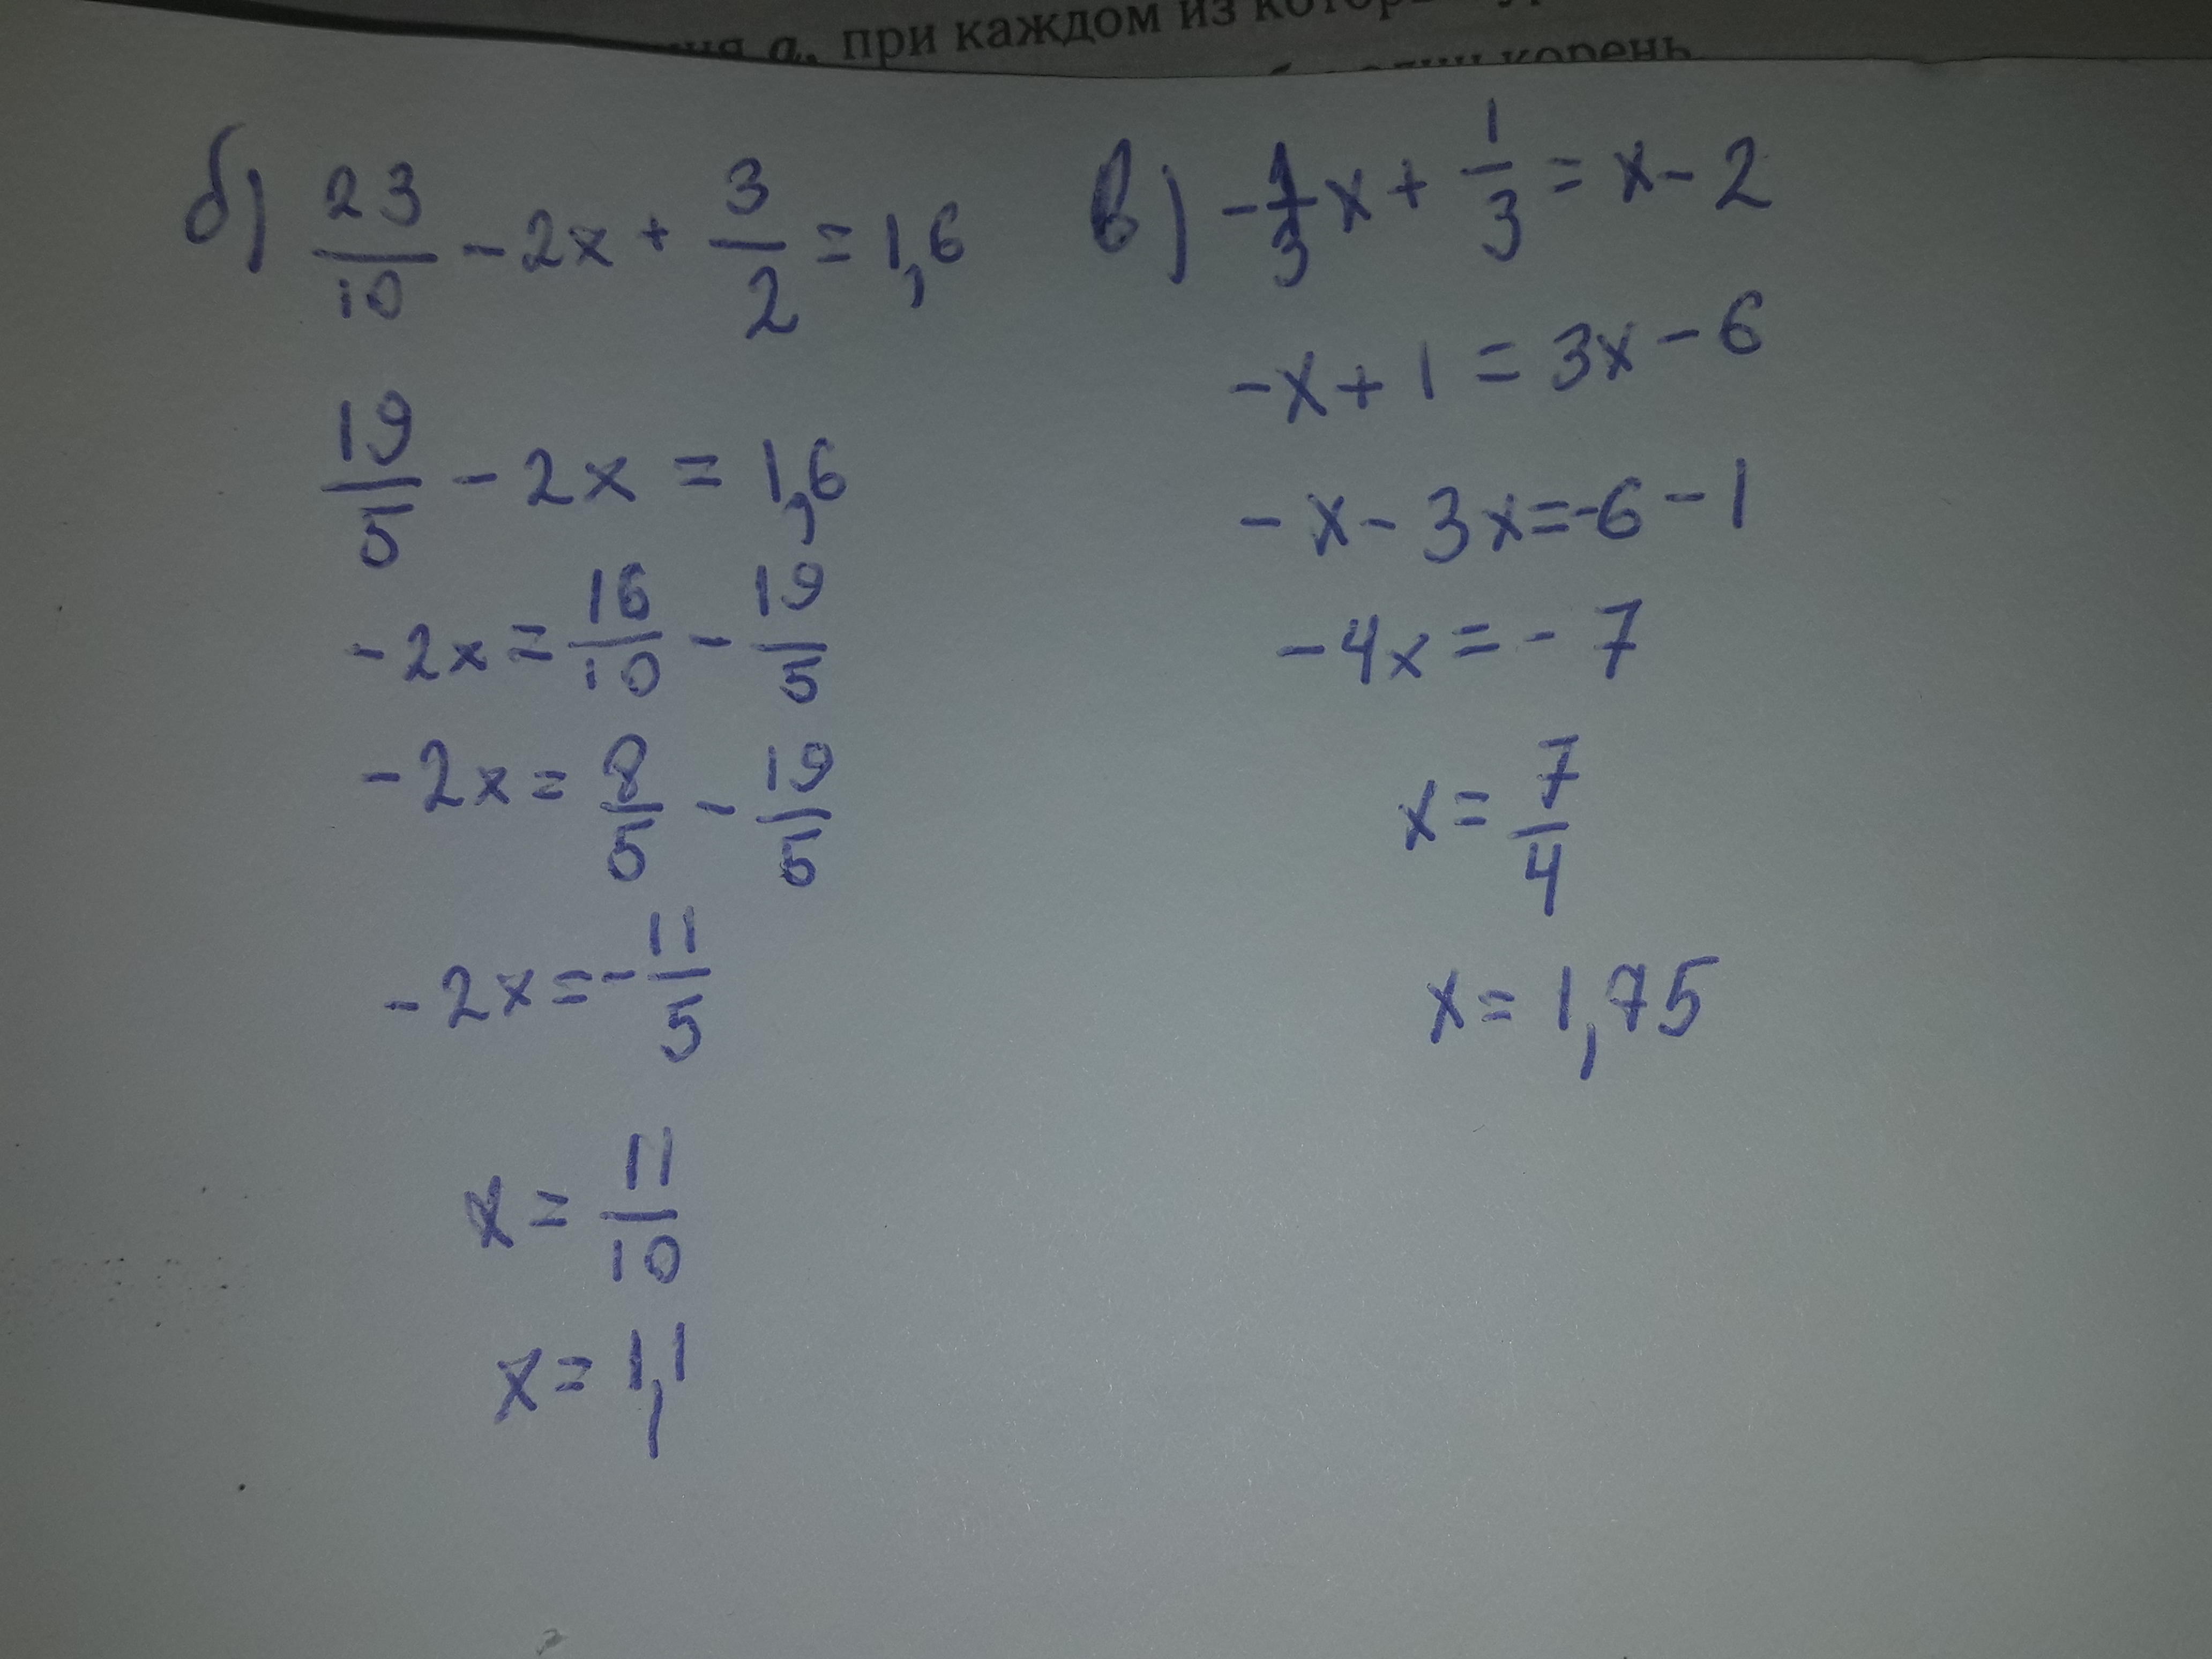 a, при каждом из
корень
б) 23/10 - 2x + 3/2 = 1,6
19/5 - 2x = 1,6
-2x = 16/10 - 19/5
-2x = 8/5 - 19/5
-2x = -11/5
x = 11/10
x = 1,1
в) -1/3x + 1/3 = x - 2
-x + 1 = 3x - 6
-x - 3x = -6 - 1
-4x = -7
x = 7/4
x = 1,75